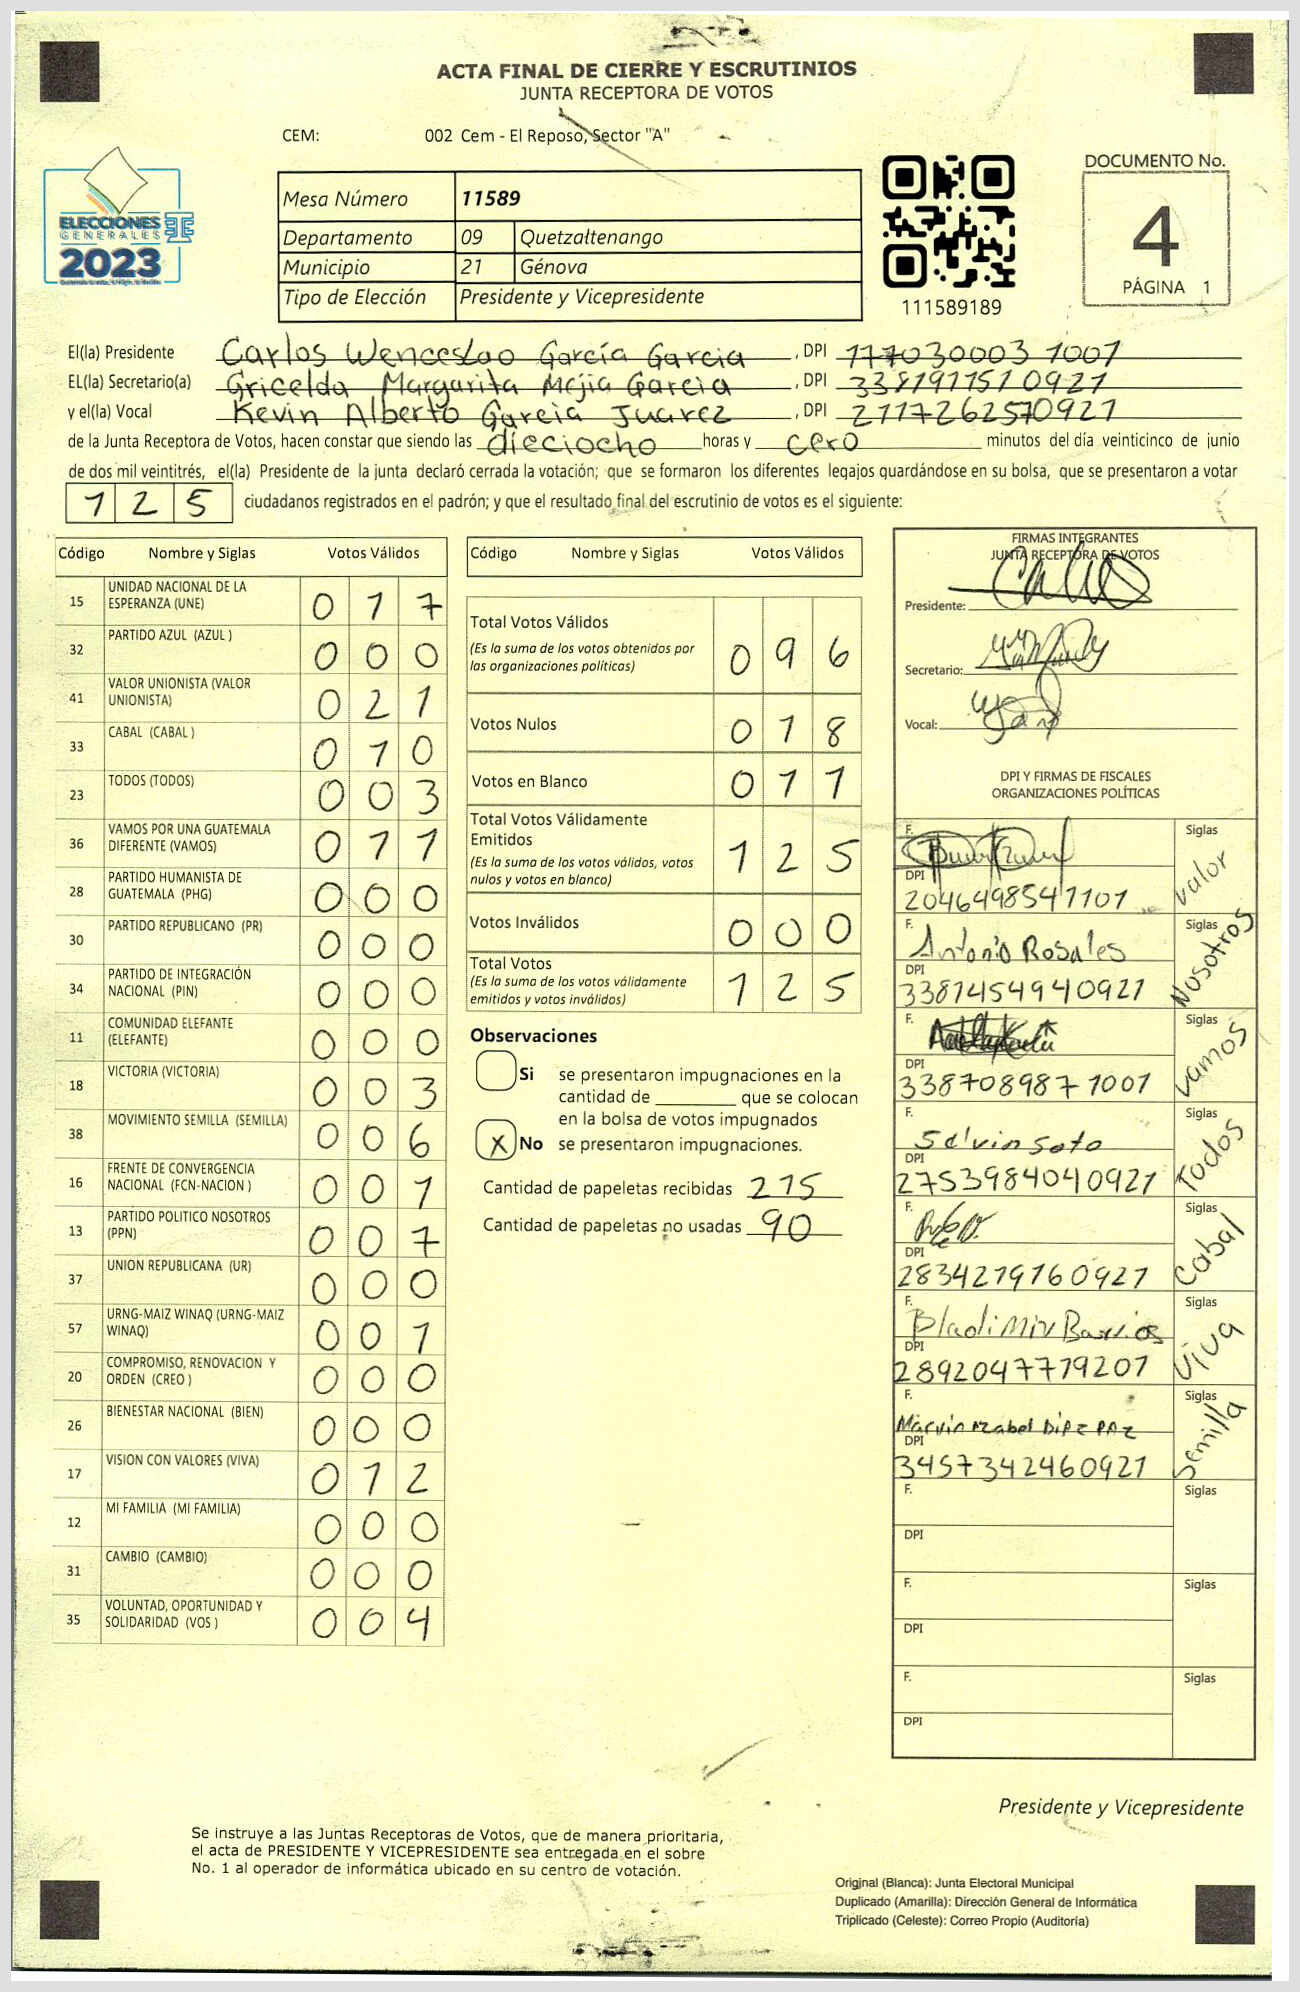 ACTA FINAL DE CIERRE Y ESCRUTINIOS
JUNTA RECEPTORA DE VOTOS
CEM: 002 Cem - El Reposo, Sector "A"
ELECCIONES
GENERALES
2023
Mesa Número 11589
Departamento 09 Quetzaltenango
Municipio 21 Génova
Tipo de Elección Presidente y Vicepresidente
111589189
DOCUMENTO No.
4
PÁGINA 1
El(la) Presidente Carlos Wenceslao García Garcia, DPI 177030003 1001
EL(la) Secretario(a) Gricelda Margarita Mejia Garcia, DPI 3381911510921
y el(la) Vocal Kevin Alberto Garcia Juarez, DPI 2117262570921
de la Junta Receptora de Votos, hacen constar que siendo las dieciocho horas y cero minutos del día veinticinco de junio
de dos mil veintitrés, el(la) Presidente de la junta declaró cerrada la votación; que se formaron los diferentes legajos quardándose en su bolsa, que se presentaron a votar
125 ciudadanos registrados en el padrón; y que el resultado final del escrutinio de votos es el siguiente:
Código Nombre y Siglas Votos Válidos
15 UNIDAD NACIONAL DE LA ESPERANZA (UNE) 017
32 PARTIDO AZUL (AZUL ) 000
41 VALOR UNIONISTA (VALOR UNIONISTA) 021
33 CABAL (CABAL ) 010
23 TODOS (TODOS) 003
36 VAMOS POR UNA GUATEMALA DIFERENTE (VAMOS) 011
28 PARTIDO HUMANISTA DE GUATEMALA (PHG) 000
30 PARTIDO REPUBLICANO (PR) 000
34 PARTIDO DE INTEGRACIÓN NACIONAL (PIN) 000
11 COMUNIDAD ELEFANTE (ELEFANTE) 000
18 VICTORIA (VICTORIA) 003
38 MOVIMIENTO SEMILLA (SEMILLA) 006
16 FRENTE DE CONVERGENCIA NACIONAL (FCN-NACION ) 001
13 PARTIDO POLITICO NOSOTROS (PPN) 007
37 UNION REPUBLICANA (UR) 000
57 URNG-MAIZ WINAQ (URNG-MAIZ WINAQ) 001
20 COMPROMISO, RENOVACION Y ORDEN (CREO ) 000
26 BIENESTAR NACIONAL (BIEN) 000
17 VISION CON VALORES (VIVA) 012
12 MI FAMILIA (MI FAMILIA) 000
31 CAMBIO (CAMBIO) 000
35 VOLUNTAD, OPORTUNIDAD Y SOLIDARIDAD (VOS ) 004
Código Nombre y Siglas Votos Válidos
Total Votos Válidos 096
(Es la suma de los votos obtenidos por
las organizaciones politicas)
Votos Nulos 018
Votos en Blanco 011
Total Votos Válidamente
Emitidos 125
(Es la suma de los votos válidos, votos
nulos y votos en blanco)
Votos Inválidos 000
Total Votos 125
(Es la suma de los votos válidamente
emitidos y votos inválidos)
Observaciones
Si se presentaron impugnaciones en la
cantidad de ________ que se colocan
en la bolsa de votos impugnados
X No se presentaron impugnaciones.
Cantidad de papeletas recibidas 215
Cantidad de papeletas no usadas 90
FIRMAS INTEGRANTES
JUNTA RECEPTORA DE VOTOS
Presidente:
Secretario:
Vocal:
DPI Y FIRMAS DE FISCALES
ORGANIZACIONES POLÍTICAS
F. Siglas Valor
DPI 2046498541101
F. Antonio Rosales Siglas Nosotros
DPI 3381454940921
F. Siglas Vamos
DPI 3387089871001
F. Selvin Soto Siglas Todos
DPI 2753984040921
F. Siglas Cabal
DPI 2834219160921
F. Bladimir Barrios Siglas Viva
DPI 2892047719201
F. Marvin Izabel Diaz Paz Siglas Semilla
DPI 3457342460921
F. Siglas
DPI
F. Siglas
DPI
F. Siglas
DPI
Presidente y Vicepresidente
Se instruye a las Juntas Receptoras de Votos, que de manera prioritaria,
el acta de PRESIDENTE Y VICEPRESIDENTE sea entregada en el sobre
No. 1 al operador de informática ubicado en su centro de votación.
Original (Blanca): Junta Electoral Municipal
Duplicado (Amarilla): Dirección General de Informática
Triplicado (Celeste): Correo Propio (Auditoría)